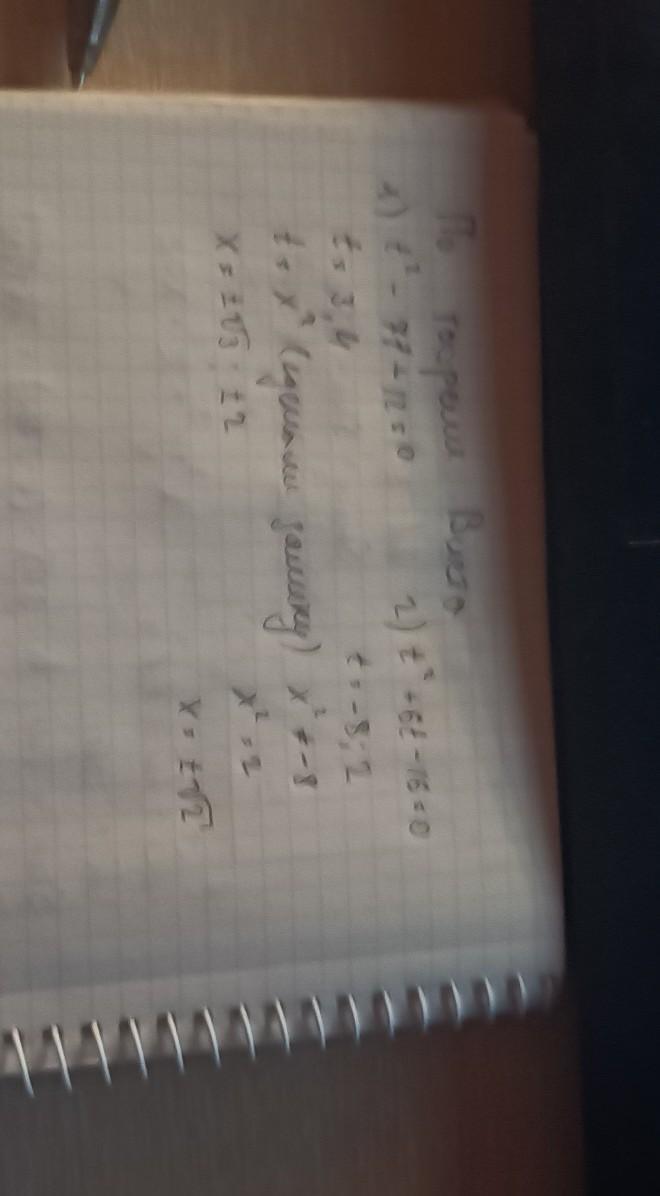 По теореме Виета
1) t² - 7t + 12 = 0
t = 3; 4
t = x² (сделали замену)
x = ±√3; ±2
2) t² + 6t - 16 = 0
t = -8; 2
x² ≠ -8
x² = 2
x = ±√2